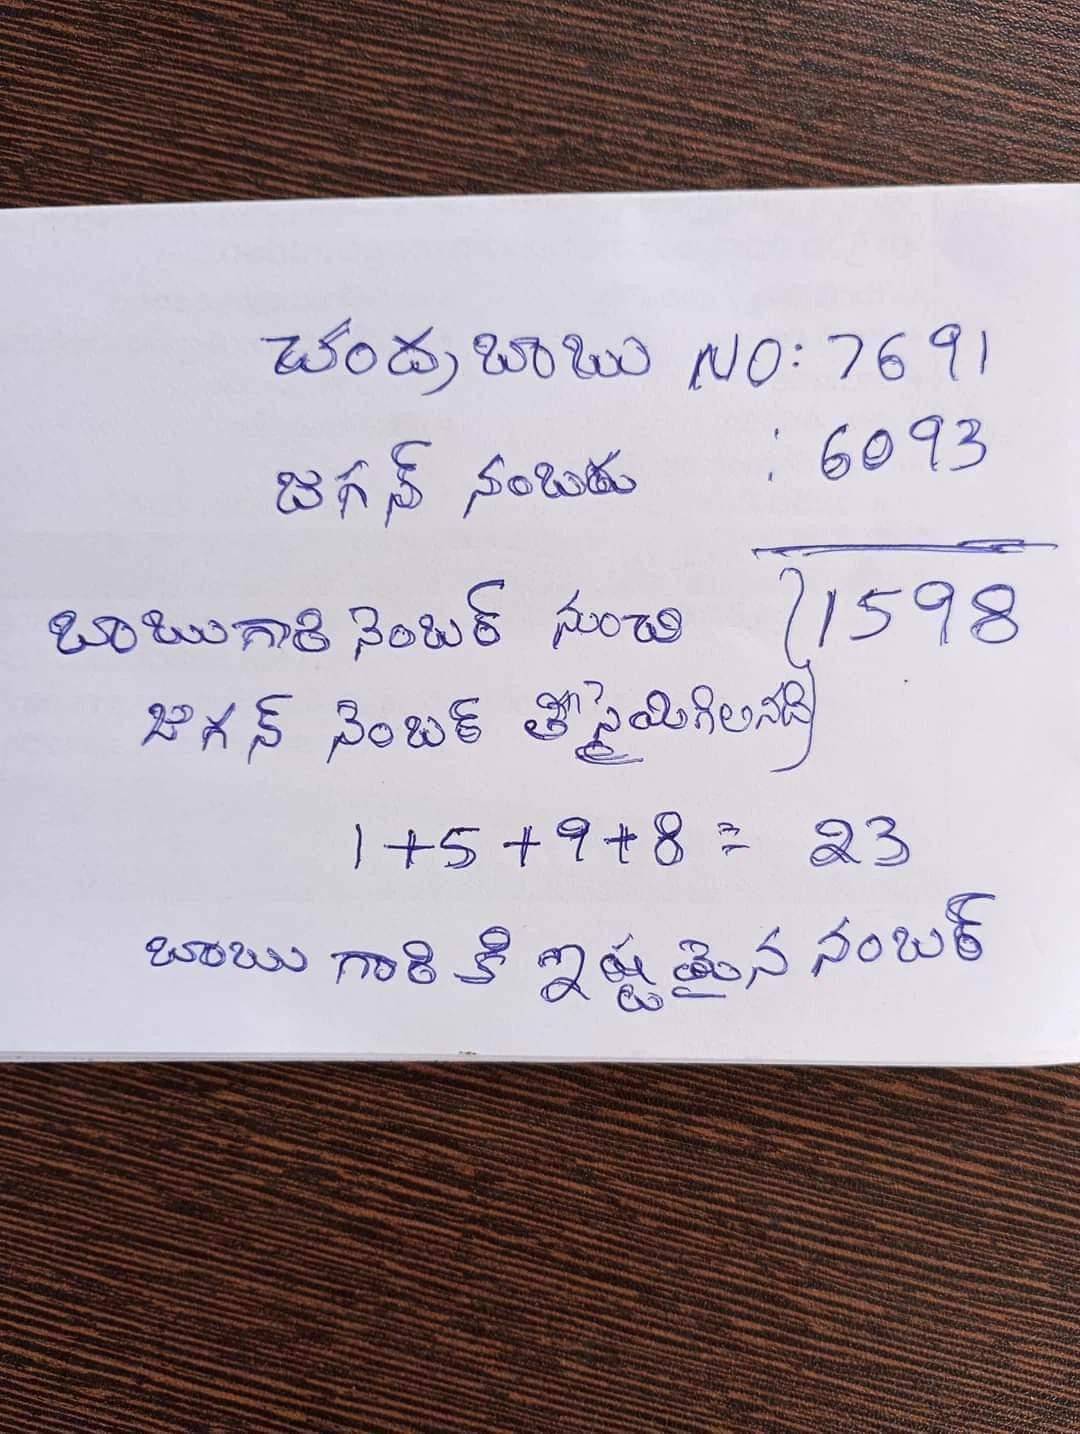 చంద్రబాబు NO: 7691
జగన్ నంబరు : 6093
బాబుగారి నెంబర్ నుంచి 1598
జగన్ నెంబర్ తీసి మిగిలినది
1+5+9+8 = 23
బాబు గారి కి ఇష్టమైన నంబర్